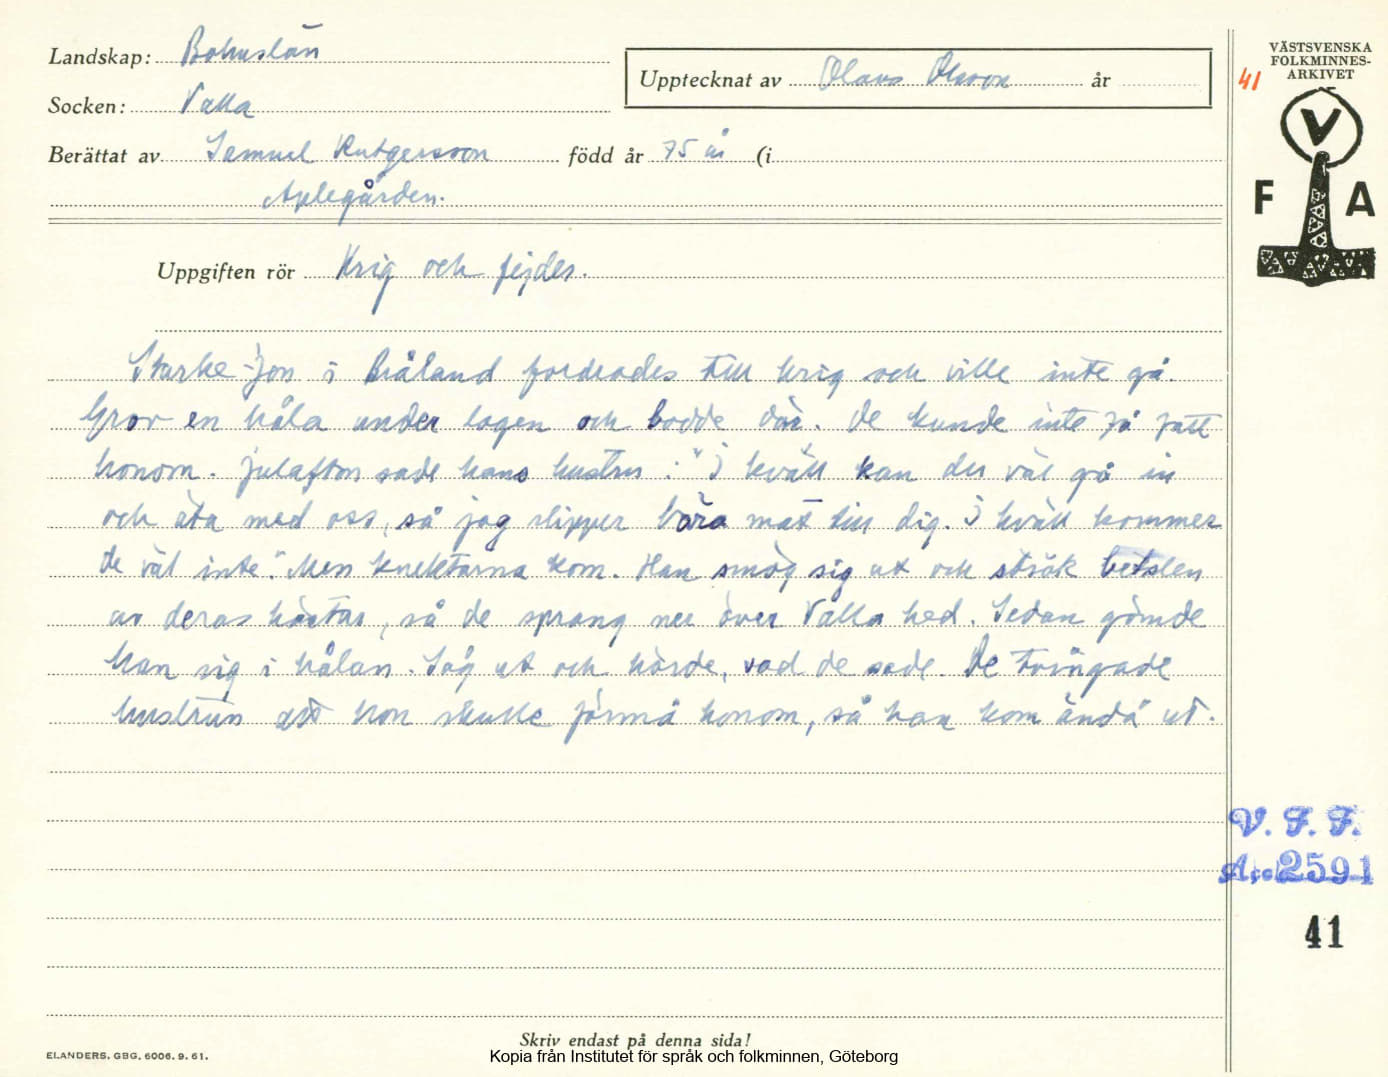 Landskap: Bohuslän
Socken: Valla
Upptecknat av Olava Olsson år
Berättat av Samuel Rutgersson född år 75 år (i
Aplegården.
Uppgiften rör Krig och fejder.
Starke-Jon i Bråland fordrades till krig och ville inte gå.
Grov en håla under logen och bodde där. De kunde inte få fatt
honom. Julafton sade hans hustru: "I kväll kan du väl gå in
och äta med oss, så jag slipper bära mat till dig. I kväll kommer
de väl inte." Men knektarna kom. Han smög sig ut och strök betslen
av deras hästar, så de sprang ner över Valla hed. Sedan gömde
han sig i hålan. Såg ut och hörde, vad de sade. De tvingade
hustrun att hon skulle förmå honom, så han kom ändå ut.
VÄSTSVENSKA
FOLKMINNES-
ARKIVET
41
V
F A
V. F. F.
Acc. 2591
41
Skriv endast på denna sida!
ELANDERS, GBG, 6006. 9. 61.
Kopia från Institutet för språk och folkminnen, Göteborg